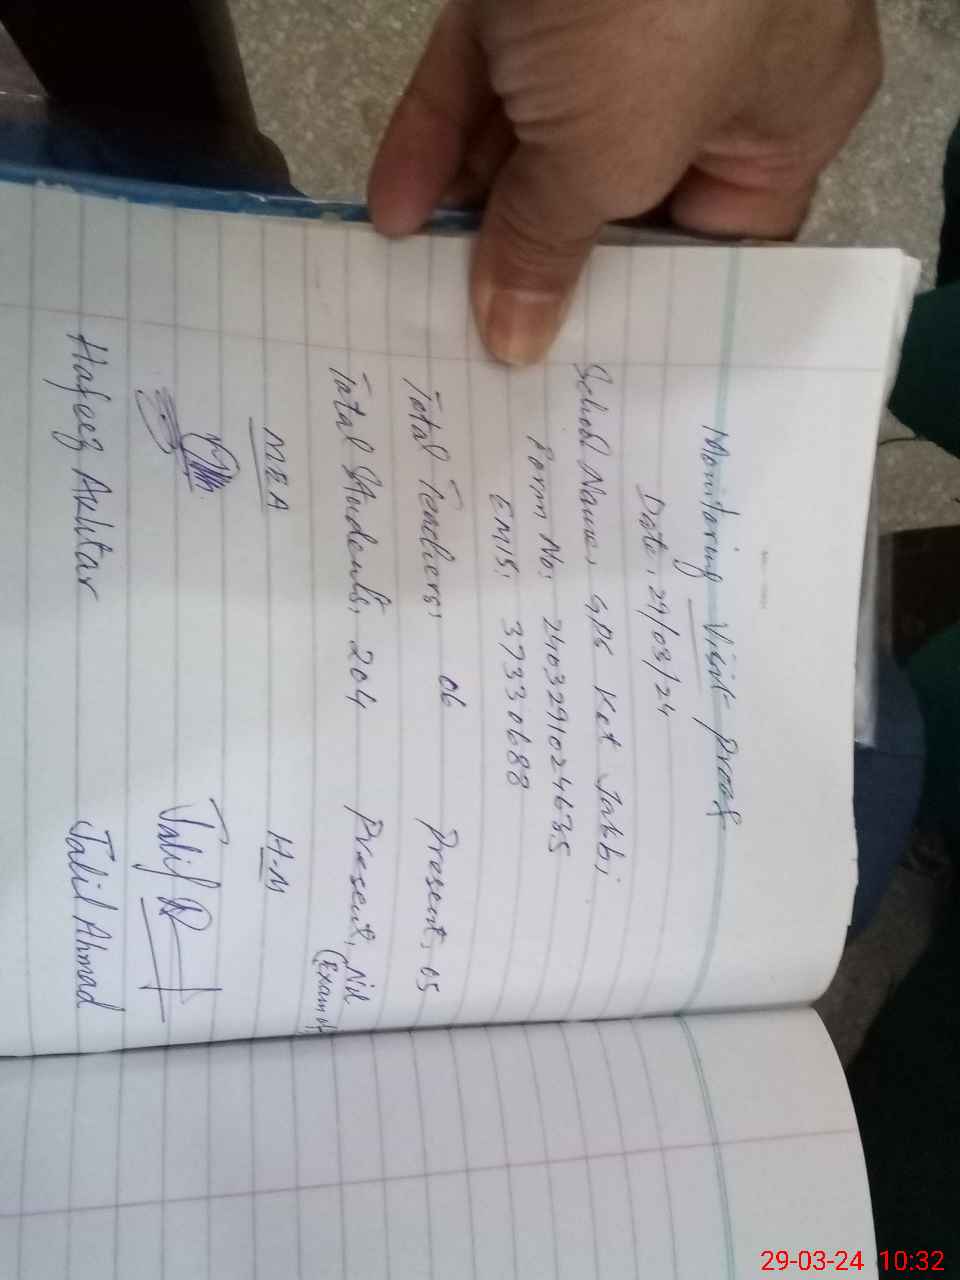 Monitoring Visit Proof
Date, 29/03/24
School Name, GPS Kot Jabbi
Form No: 2403291024635
EMIS: 37330688
Total Teachers, 06 Present, 05
Total Students, 204 Present, Nil
(Exam
MEA H-M
Hafeez Akhtar Jalil Ahmad
29-03-24 10:32